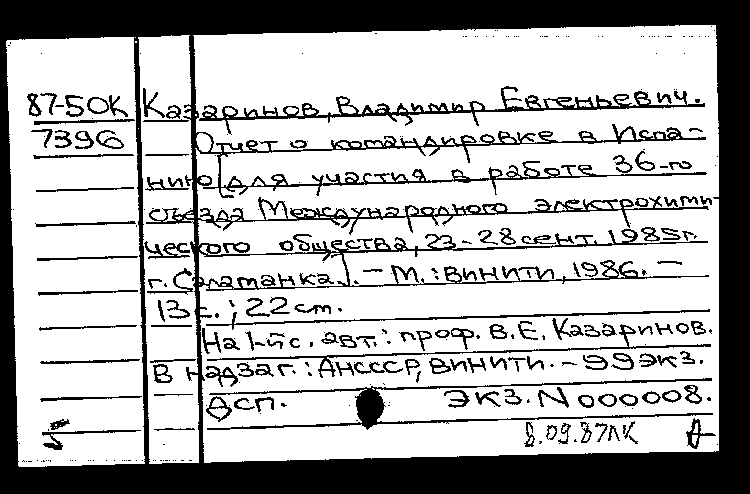 87-50К Казаринов, Владимир Евгеньевич.
7396 Отчет о командировке в Испа-
нию [для участия в работе 36-го
съезда Международного электрохими-
ческого общества, 23-28 сент. 1985г.
г. Саламанка]. - М. : ВИНИТИ, 1986. -
13 с. ; 22 см.
На 1-й с. авт. : проф. В. Е. Казаринов.
В надзаг. : АН СССР, ВИНИТИ. - 99 экз.
Дсп. ЭКЗ. N 000008.
8.09.87ЛК